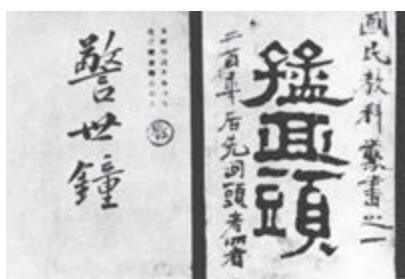 國民教科叢書之一
猛回頭
二百年后先迴頭者署
警世鐘